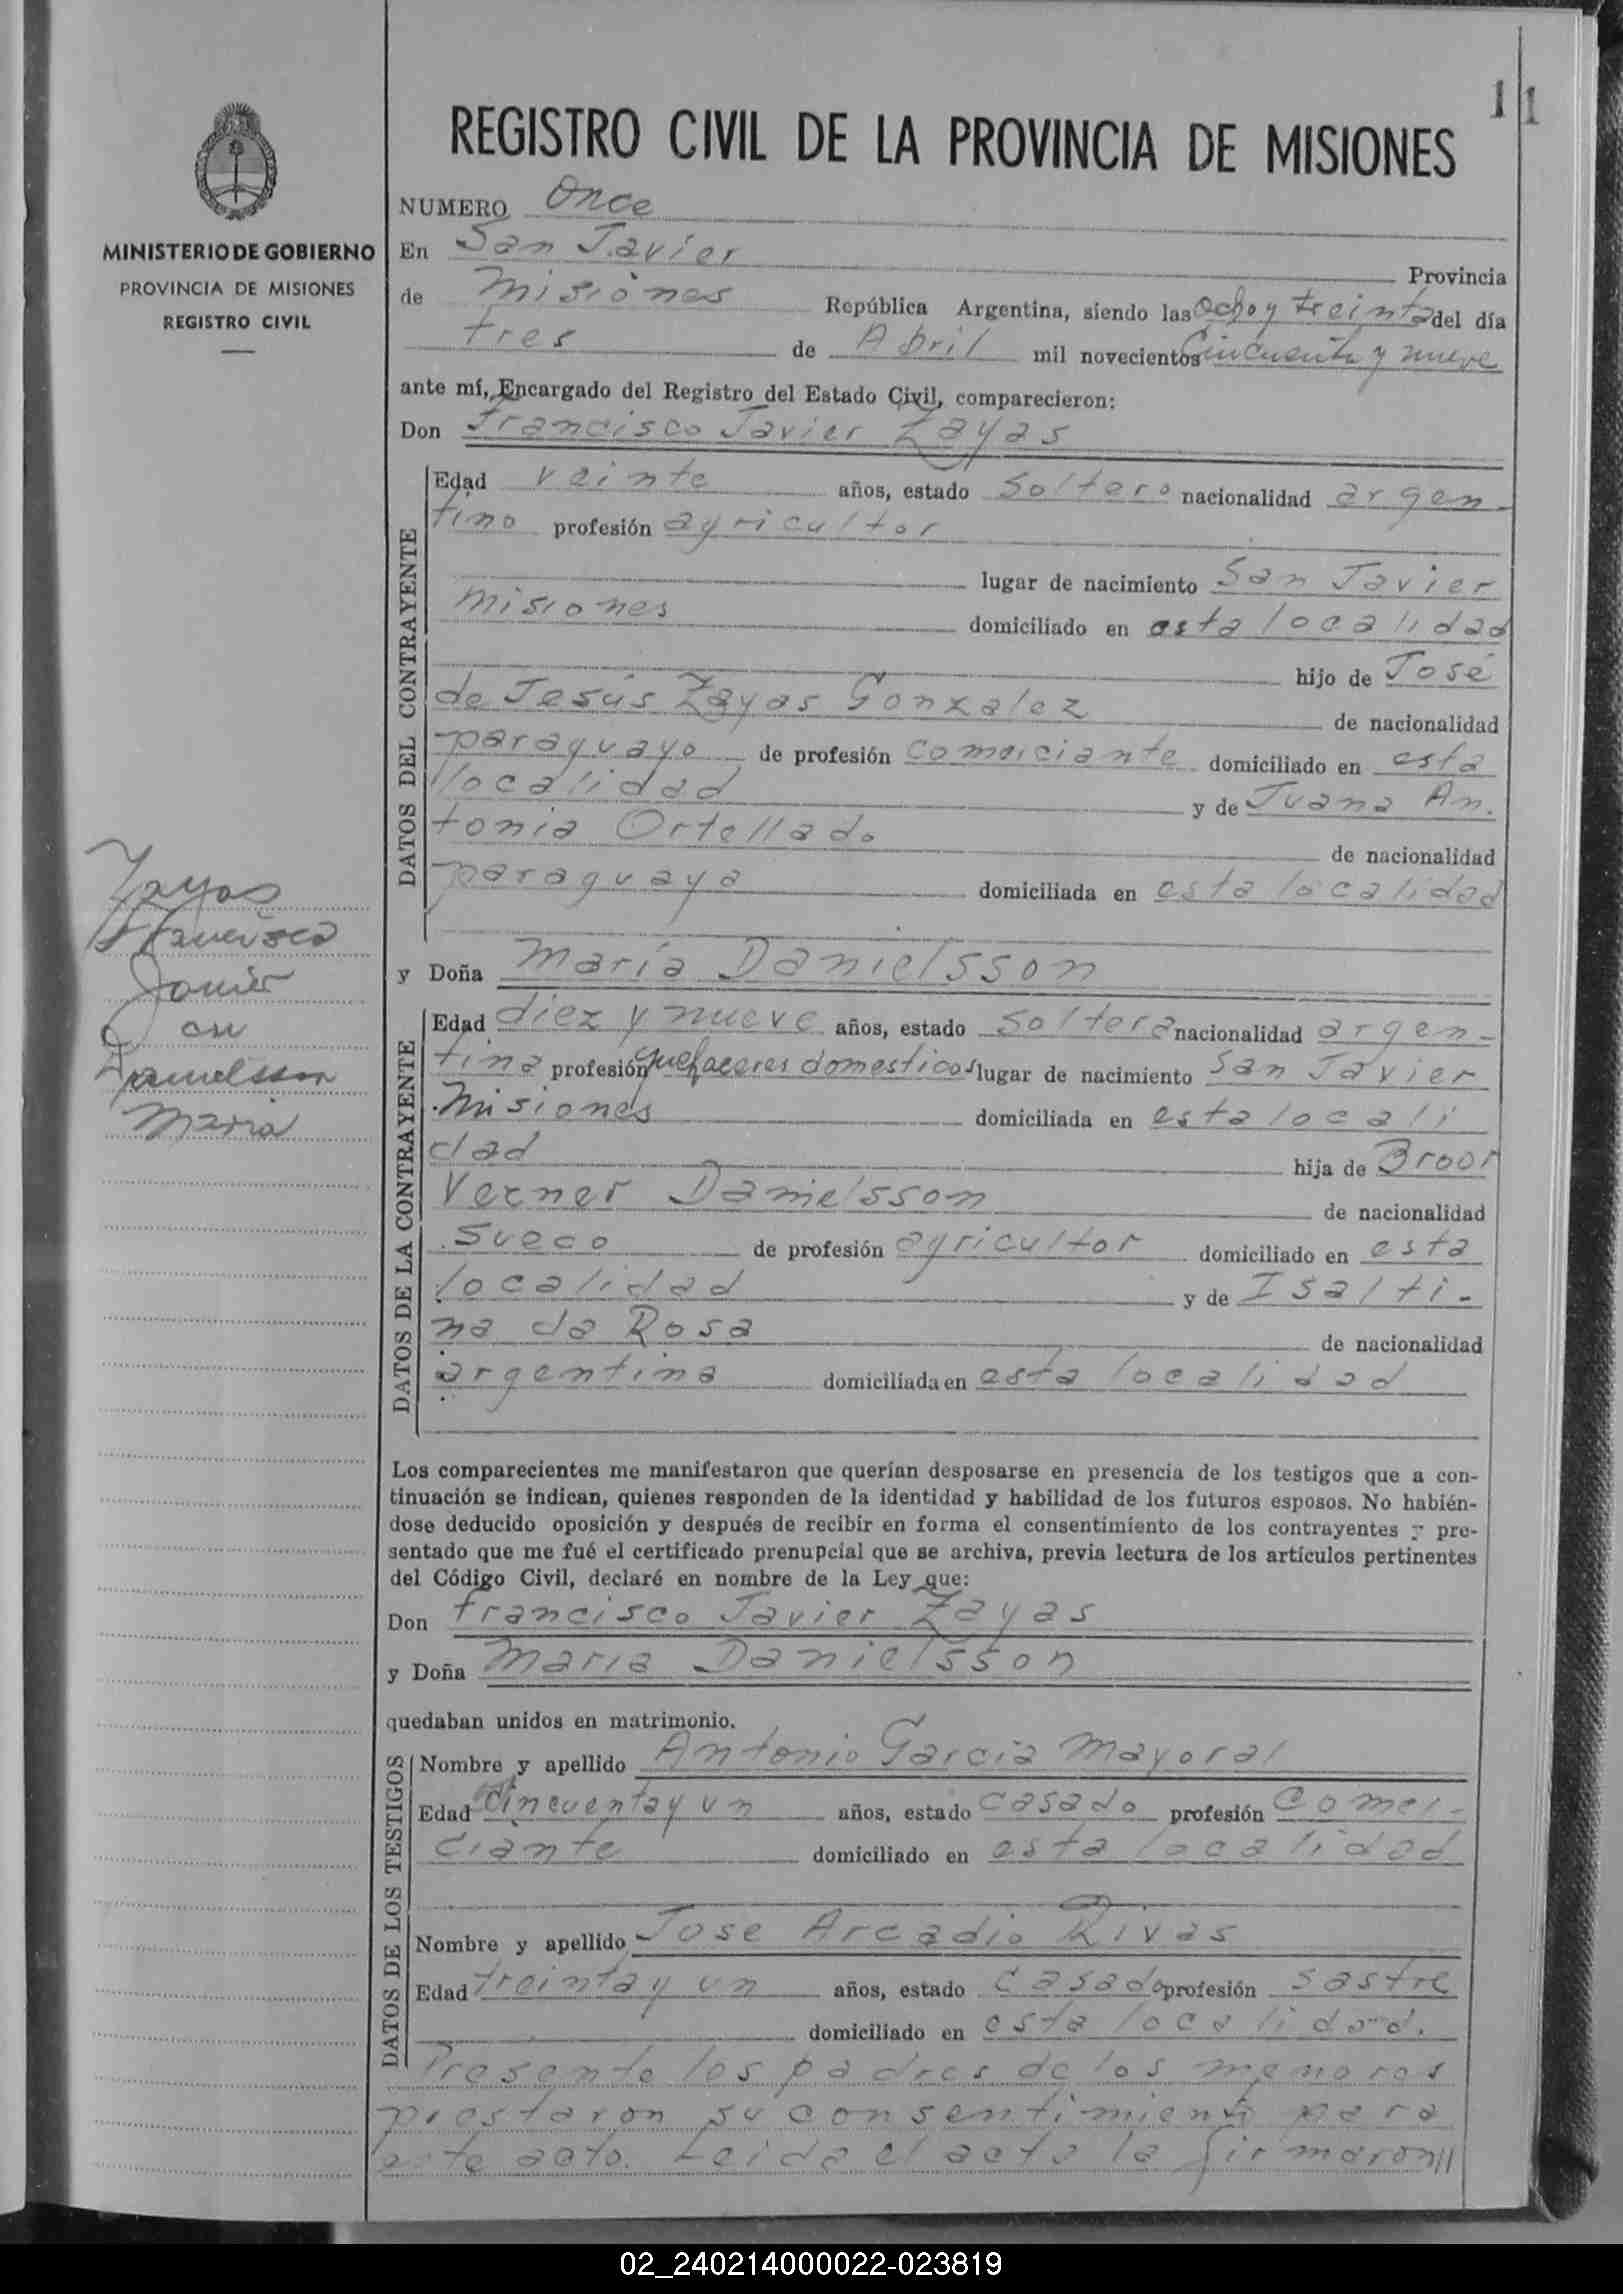 11
REGISTRO CIVIL DE LA PROVINCIA DE MISIONES
MINISTERIO DE GOBIERNO
PROVINCIA DE MISIONES
REGISTRO CIVIL
NUMERO Once
En San Javier Provincia
de Misiones República Argentina, siendo las Ocho y treinta del día
tres de Abril mil novecientos Cincuenta y nueve
ante mí, Encargado del Registro del Estado Civil, comparecieron:
Don Francisco Javier Zayas
DATOS DEL CONTRAYENTE
Edad veinte años, estado soltero nacionalidad argen-
tino profesión agricultor
lugar de nacimiento San Javier
Misiones domiciliado en esta localidad
hijo de José
de Jesús Zayas Gonzalez de nacionalidad
paraguayo de profesión comerciante domiciliado en esta
localidad y de Juana An.
tonia Ortellado de nacionalidad
paraguaya domiciliada en esta localidad
Zayas
Francisco
Javier
con
Danielsson
Maria
y Doña María Danielsson
DATOS DE LA CONTRAYENTE
Edad diez y nueve años, estado soltera nacionalidad argen-
tina profesión quehaceres domesticos lugar de nacimiento San Javier
Misiones domiciliada en esta locali
dad hija de Broor
Verner Danielsson de nacionalidad
sueco de profesión agricultor domiciliado en esta
localidad y de Isalti-
na da Rosa de nacionalidad
argentina domiciliada en esta localidad
Los comparecientes me manifestaron que querían desposarse en presencia de los testigos que a con-
tinuación se indican, quienes responden de la identidad y habilidad de los futuros esposos. No habién-
dose deducido oposición y después de recibir en forma el consentimiento de los contrayentes y pre-
sentado que me fué el certificado prenupcial que se archiva, previa lectura de los artículos pertinentes
del Código Civil, declaré en nombre de la Ley que:
Don Francisco Javier Zayas
y Doña Maria Danielsson
quedaban unidos en matrimonio.
DATOS DE LOS TESTIGOS
Nombre y apellido Antonio Garcia Mayoral
Edad Cincuenta y un años, estado casado profesión Comer-
ciante domiciliado en esta localidad
Nombre y apellido Jose Arcadio Rivas
Edad treinta y un años, estado casado profesión sastre
domiciliado en esta localidad.
Presente los padres de los menores
prestaron su consentimiento para
este acto. Leida el acta la firmaron//
02_240214000022-023819